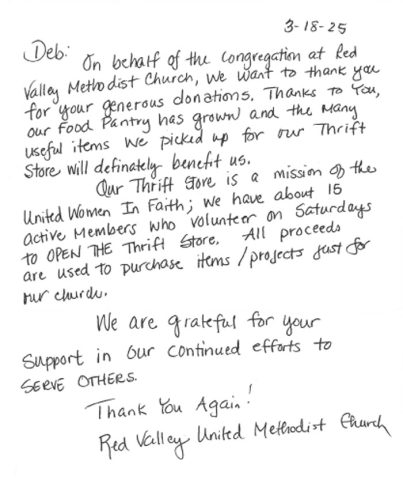 3-18-25
Deb:
On behalf of the congregation at Red
Valley Methodist Church, we want to thank you
for your generous donations. Thanks to You,
our Food Pantry has grown and the Many
useful items we picked up for our Thrift
Store will definately benefit us.
Our Thrift Store is a mission of the
United Women In Faith; we have about 15
active Members who volunteer on Saturdays
to OPEN THE Thrift Store. All proceeds
are used to purchase items/projects just for
our church.
We are grateful for your
Support in our continued efforts to
SERVE OTHERS.
Thank You Again!
Red Valley United Methodist Church